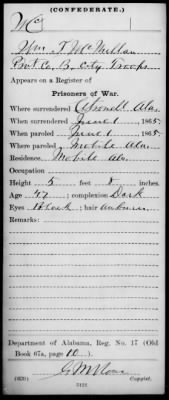 (CONFEDERATE.)
Mc
Wm T. McMillan
Pvt Co. B. City Troops
Appears on a Register of
Prisoners of War.
Where surrendered Citronell Ala.
When surrendered June 1, 1865.
When paroled June 1, 1865.
Where paroled Mobile Ala.
Residence Mobile Ala.
Occupation
Height 5 feet 8 inches.
Age 47; complexion Dark
Eyes Black; hair Auburn
Remarks:
Department of Alabama, Reg. No. 17 (Old
Book 67a, page 10).
Copyist.